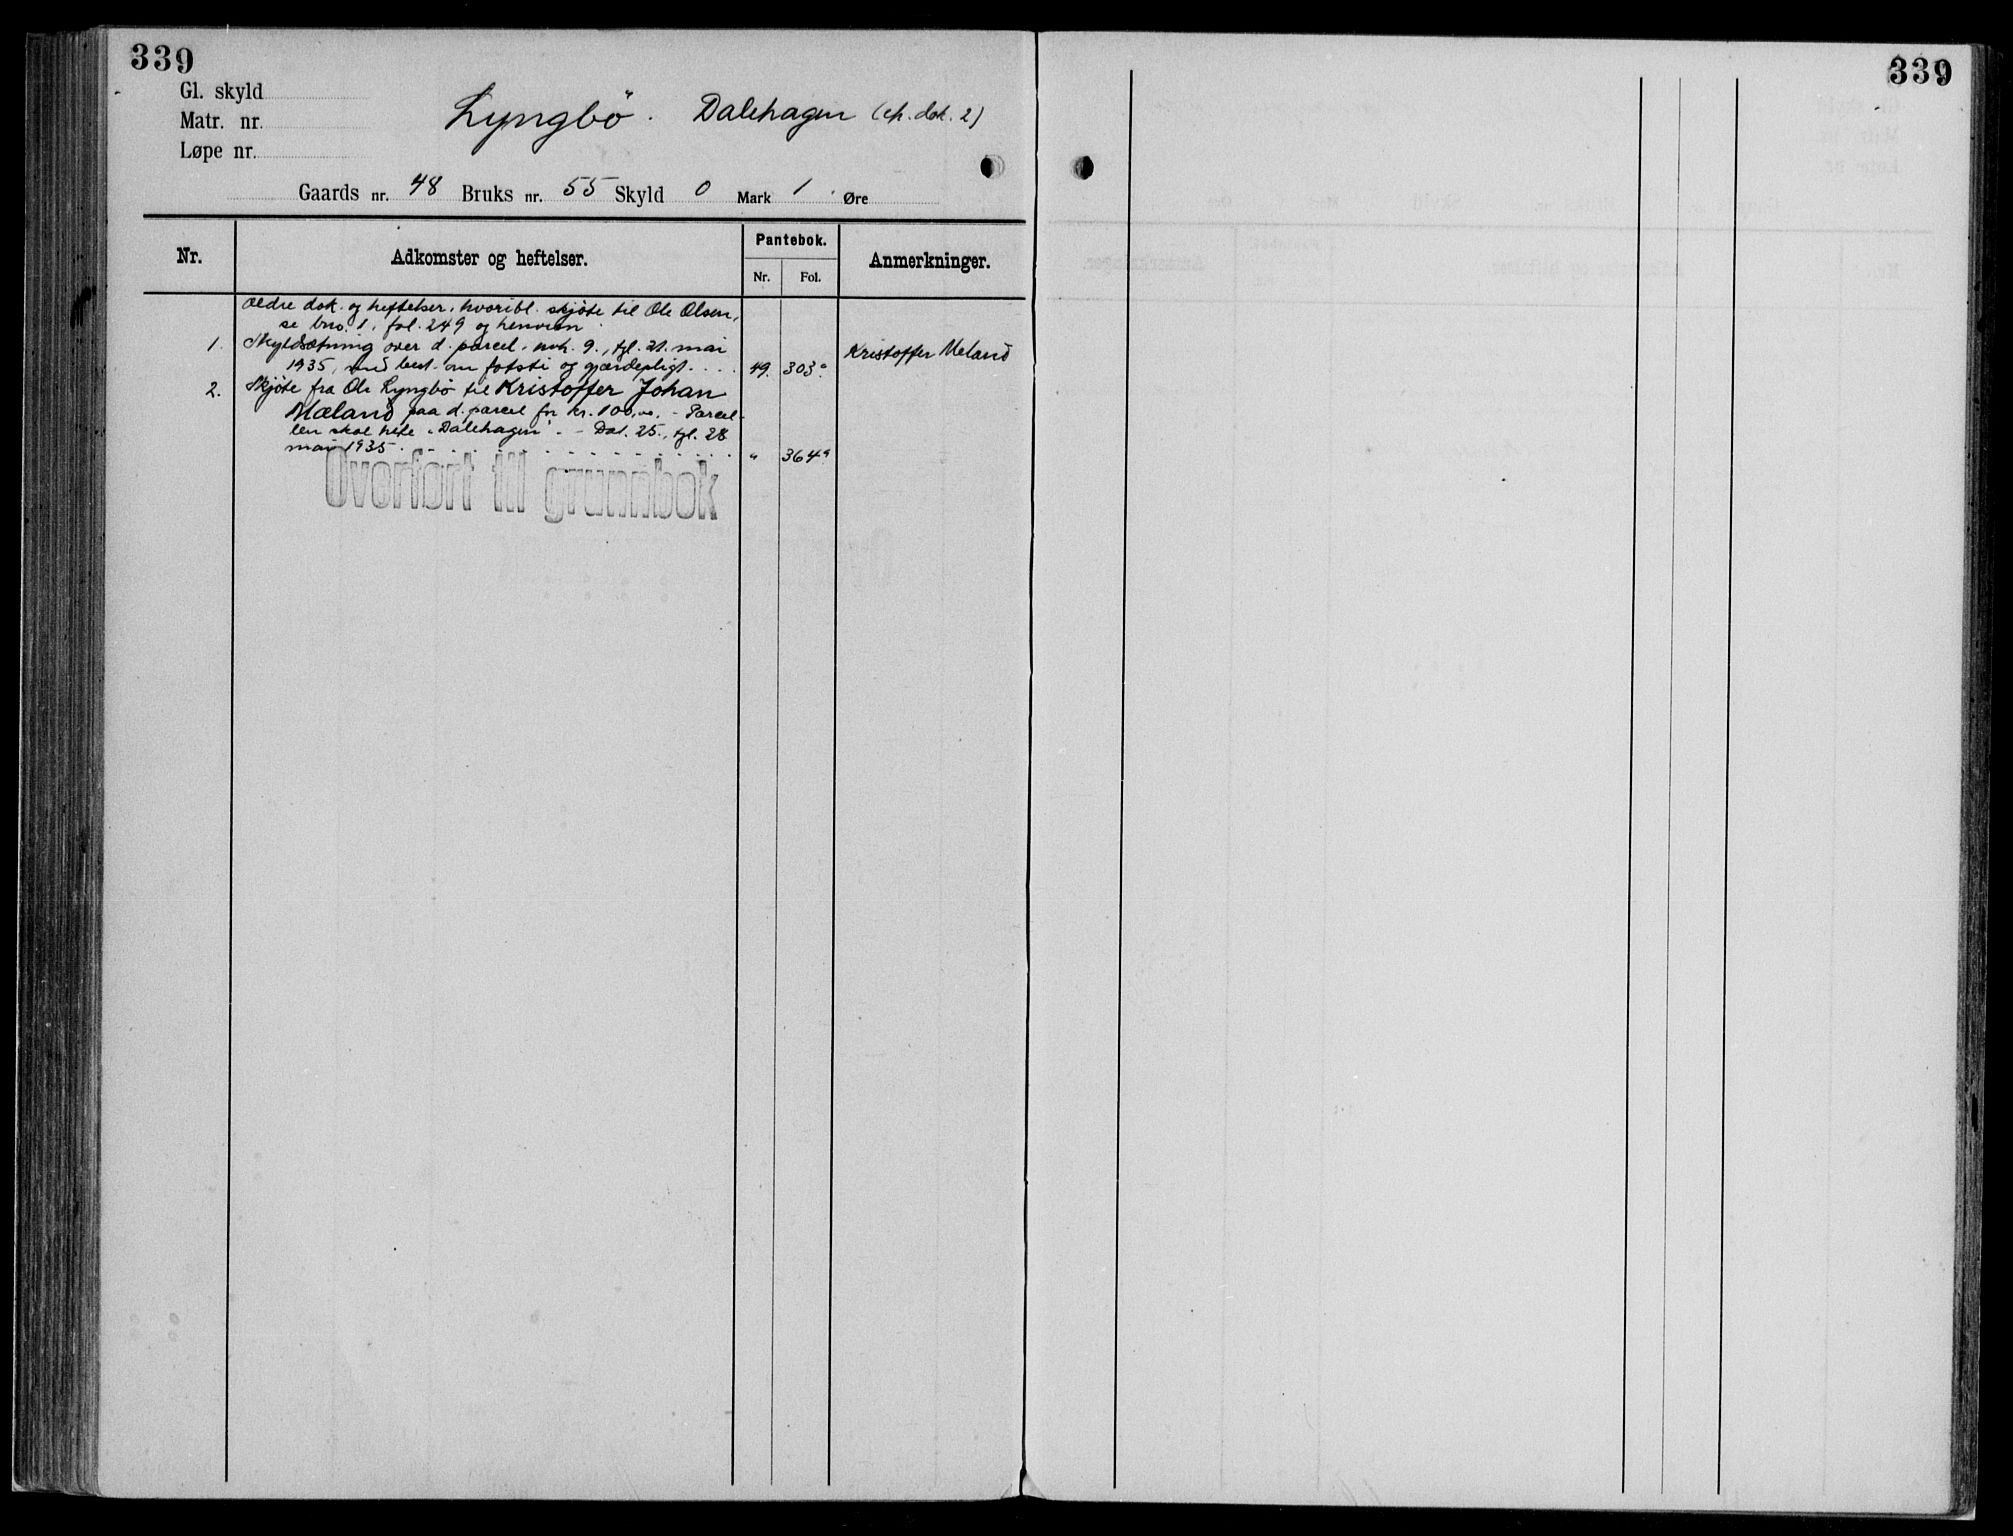 339
339
Gl. skyld
Matr. nr.
Løpe nr.
Lyngbö. Dalehagen (cfr. dok. 2)
Gaards nr. 48 Bruks nr. 55 Skyld 0 Mark 1 Øre
Nr. Adkomster og heftelser. Pantebok. Anmerkninger.
Nr. Fol.
Ældre dok. og heftelser, hvoribl. skjöte til Ole Olsen,
se bno. 1, fol. 249 og henvisn.
1. Skyldsætning over d. parcel, avh. 9., tgl. 21. mai
1935, med best. om fotsti og gjærdepligt. . . . 49. 303a. Kristoffer Meland
2. Skjöte fra Ole Lyngbö til Kristoffer Johan
Mæland paa d. parcel for kr. 100,00. - Parcel-
len skal hete "Dalehagen". - Dat. 25., tgl. 28
mai 1935. " 364a
Overført til grunnbok